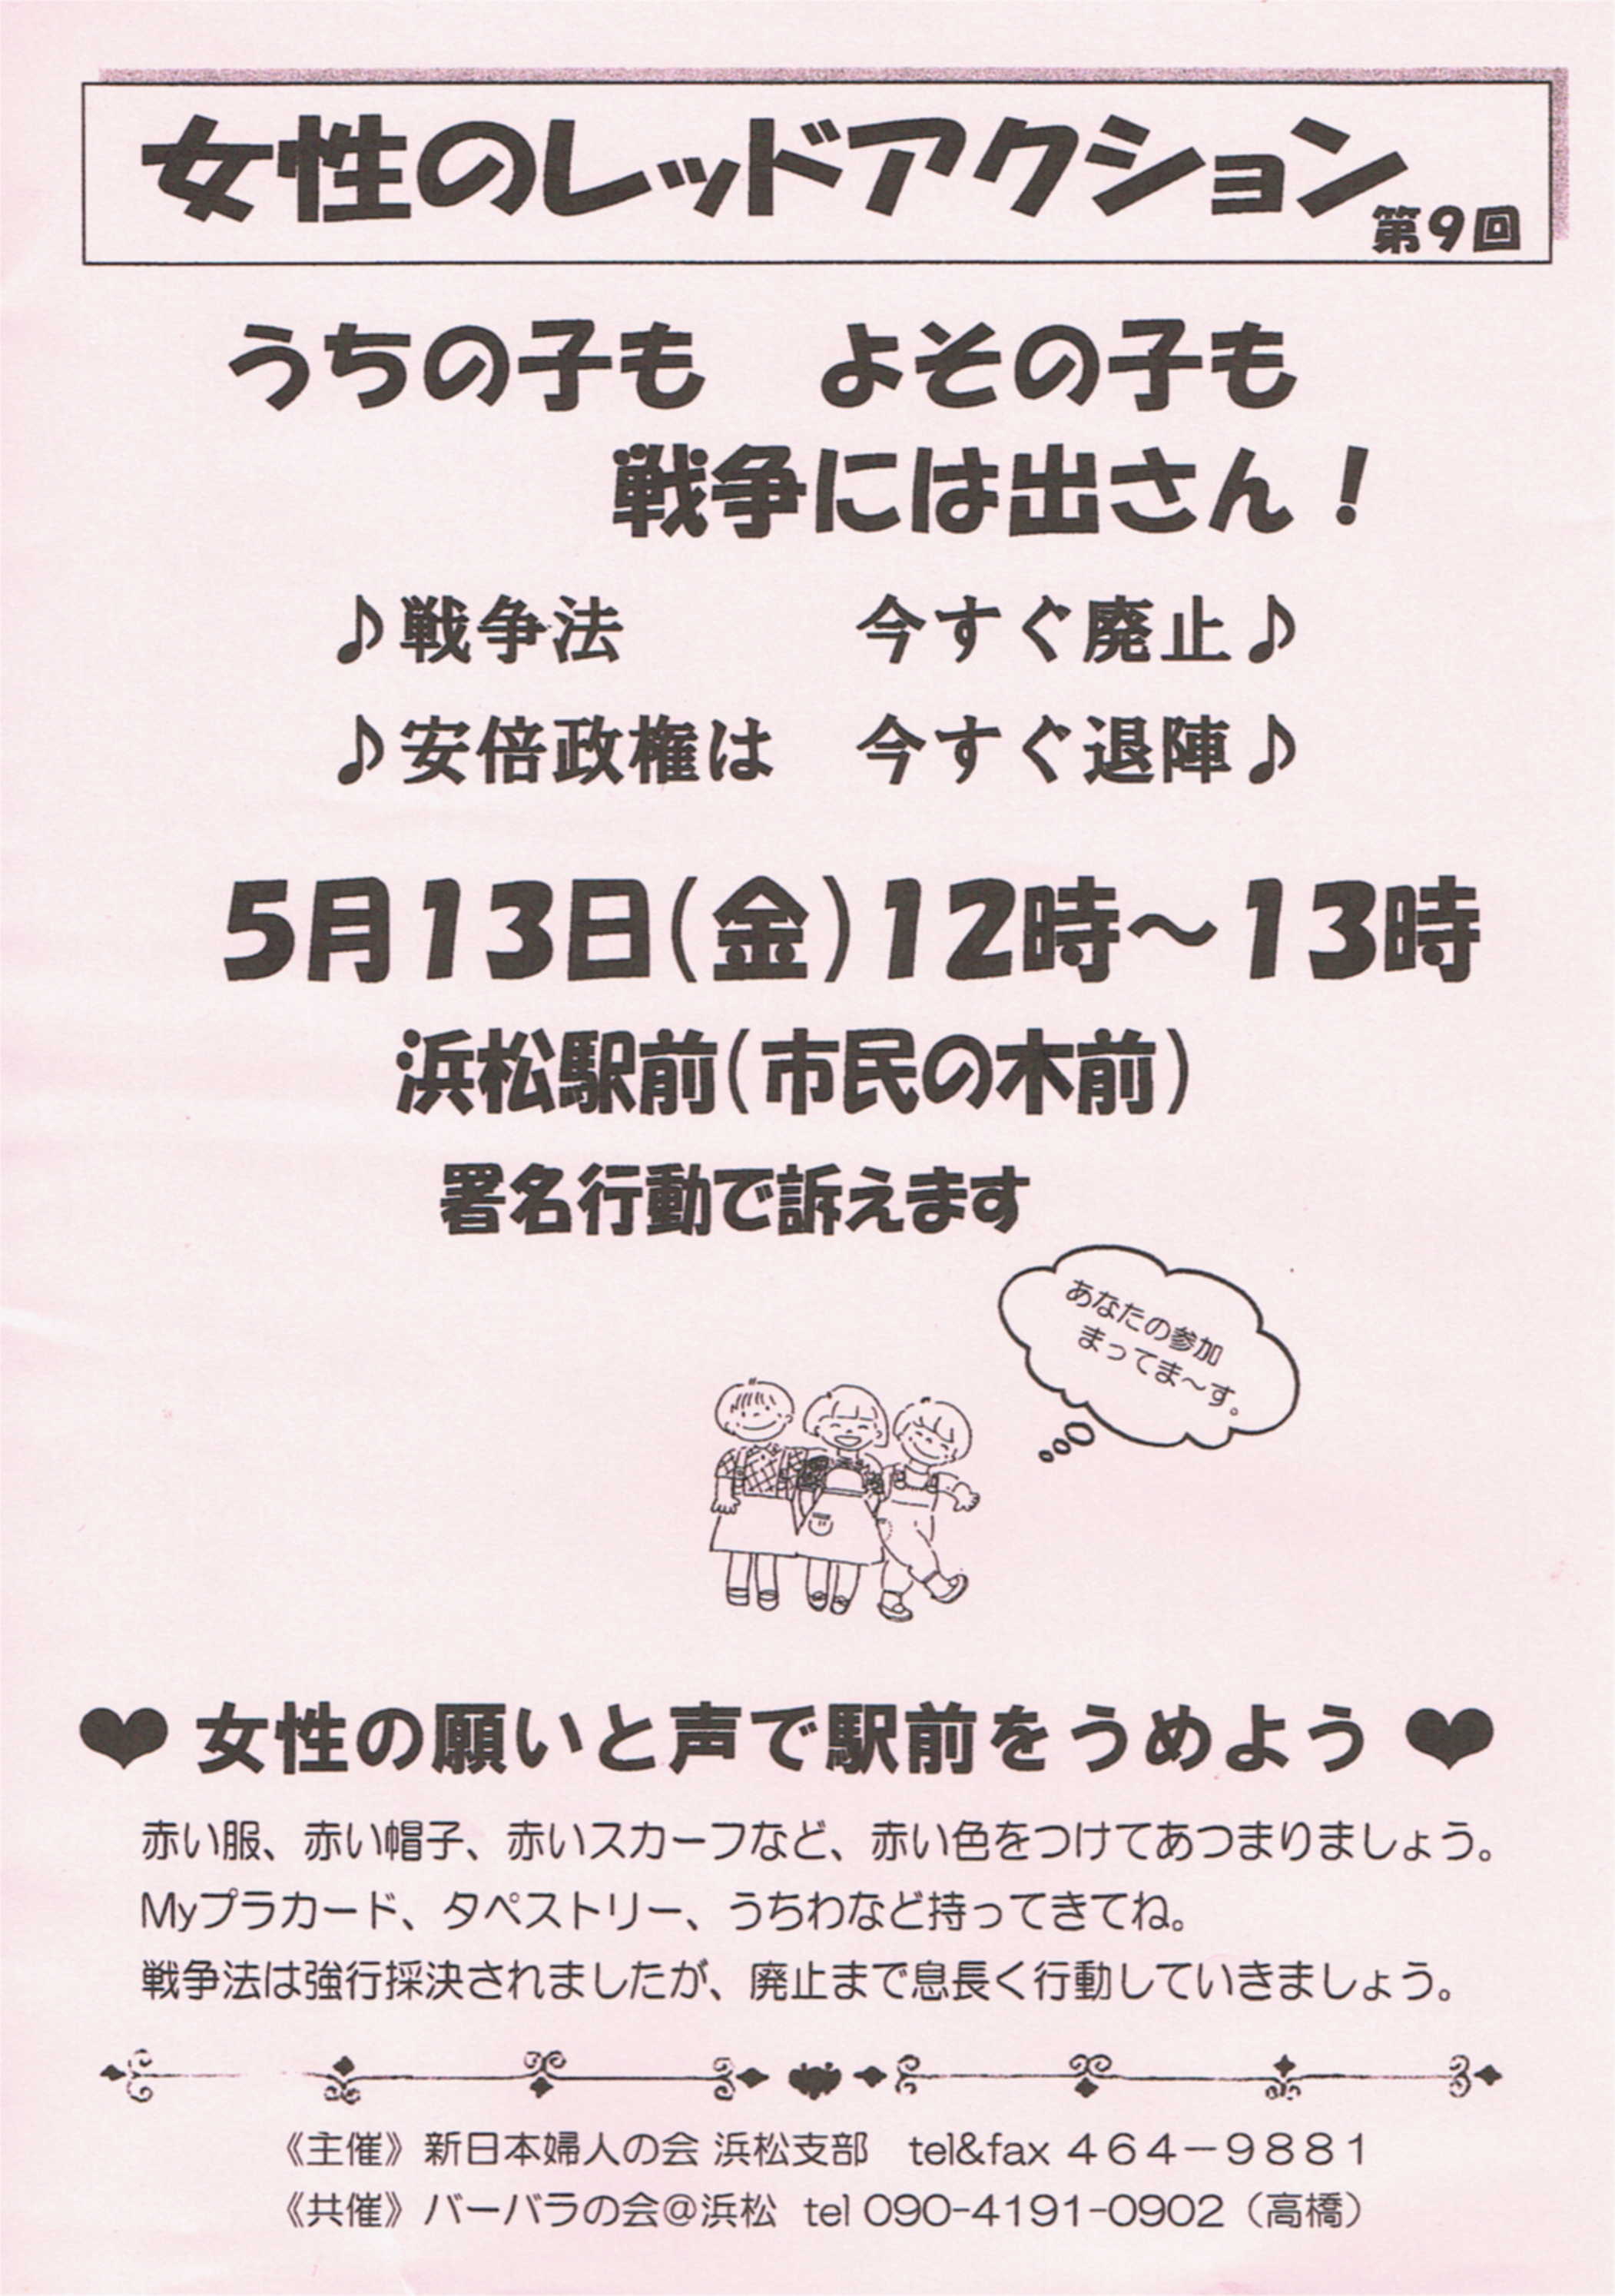 女性のレッドアクション 第9回
うちの子も　よその子も
戦争には出さん！
♪戦争法　　　今すぐ廃止♪
♪安倍政権は　今すぐ退陣♪
5月13日(金)12時～13時
浜松駅前(市民の木前)
署名行動で訴えます
あなたの参加
まってま～す。
❤女性の願いと声で駅前をうめよう❤
赤い服、赤い帽子、赤いスカーフなど、赤い色をつけてあつまりましょう。
Myプラカード、タペストリー、うちわなど持ってきてね。
戦争法は強行採決されましたが、廃止まで息長く行動していきましょう。
《主催》新日本婦人の会 浜松支部　tel&fax ４６４－９８８１
《共催》バーバラの会@浜松　tel 090-4191-0902（高橋）